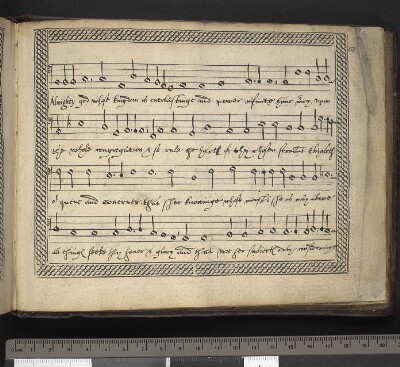 Almighty god whose kingdom is everlastinge and power infinite have mercy upon
the whole congregation & so rule the heart of thy chosen servant Elizabeth
o{r} quene and governer that she knowinge whose minister she is may above
all things seeke thy honor & glory and that we her subiects duly consideringe